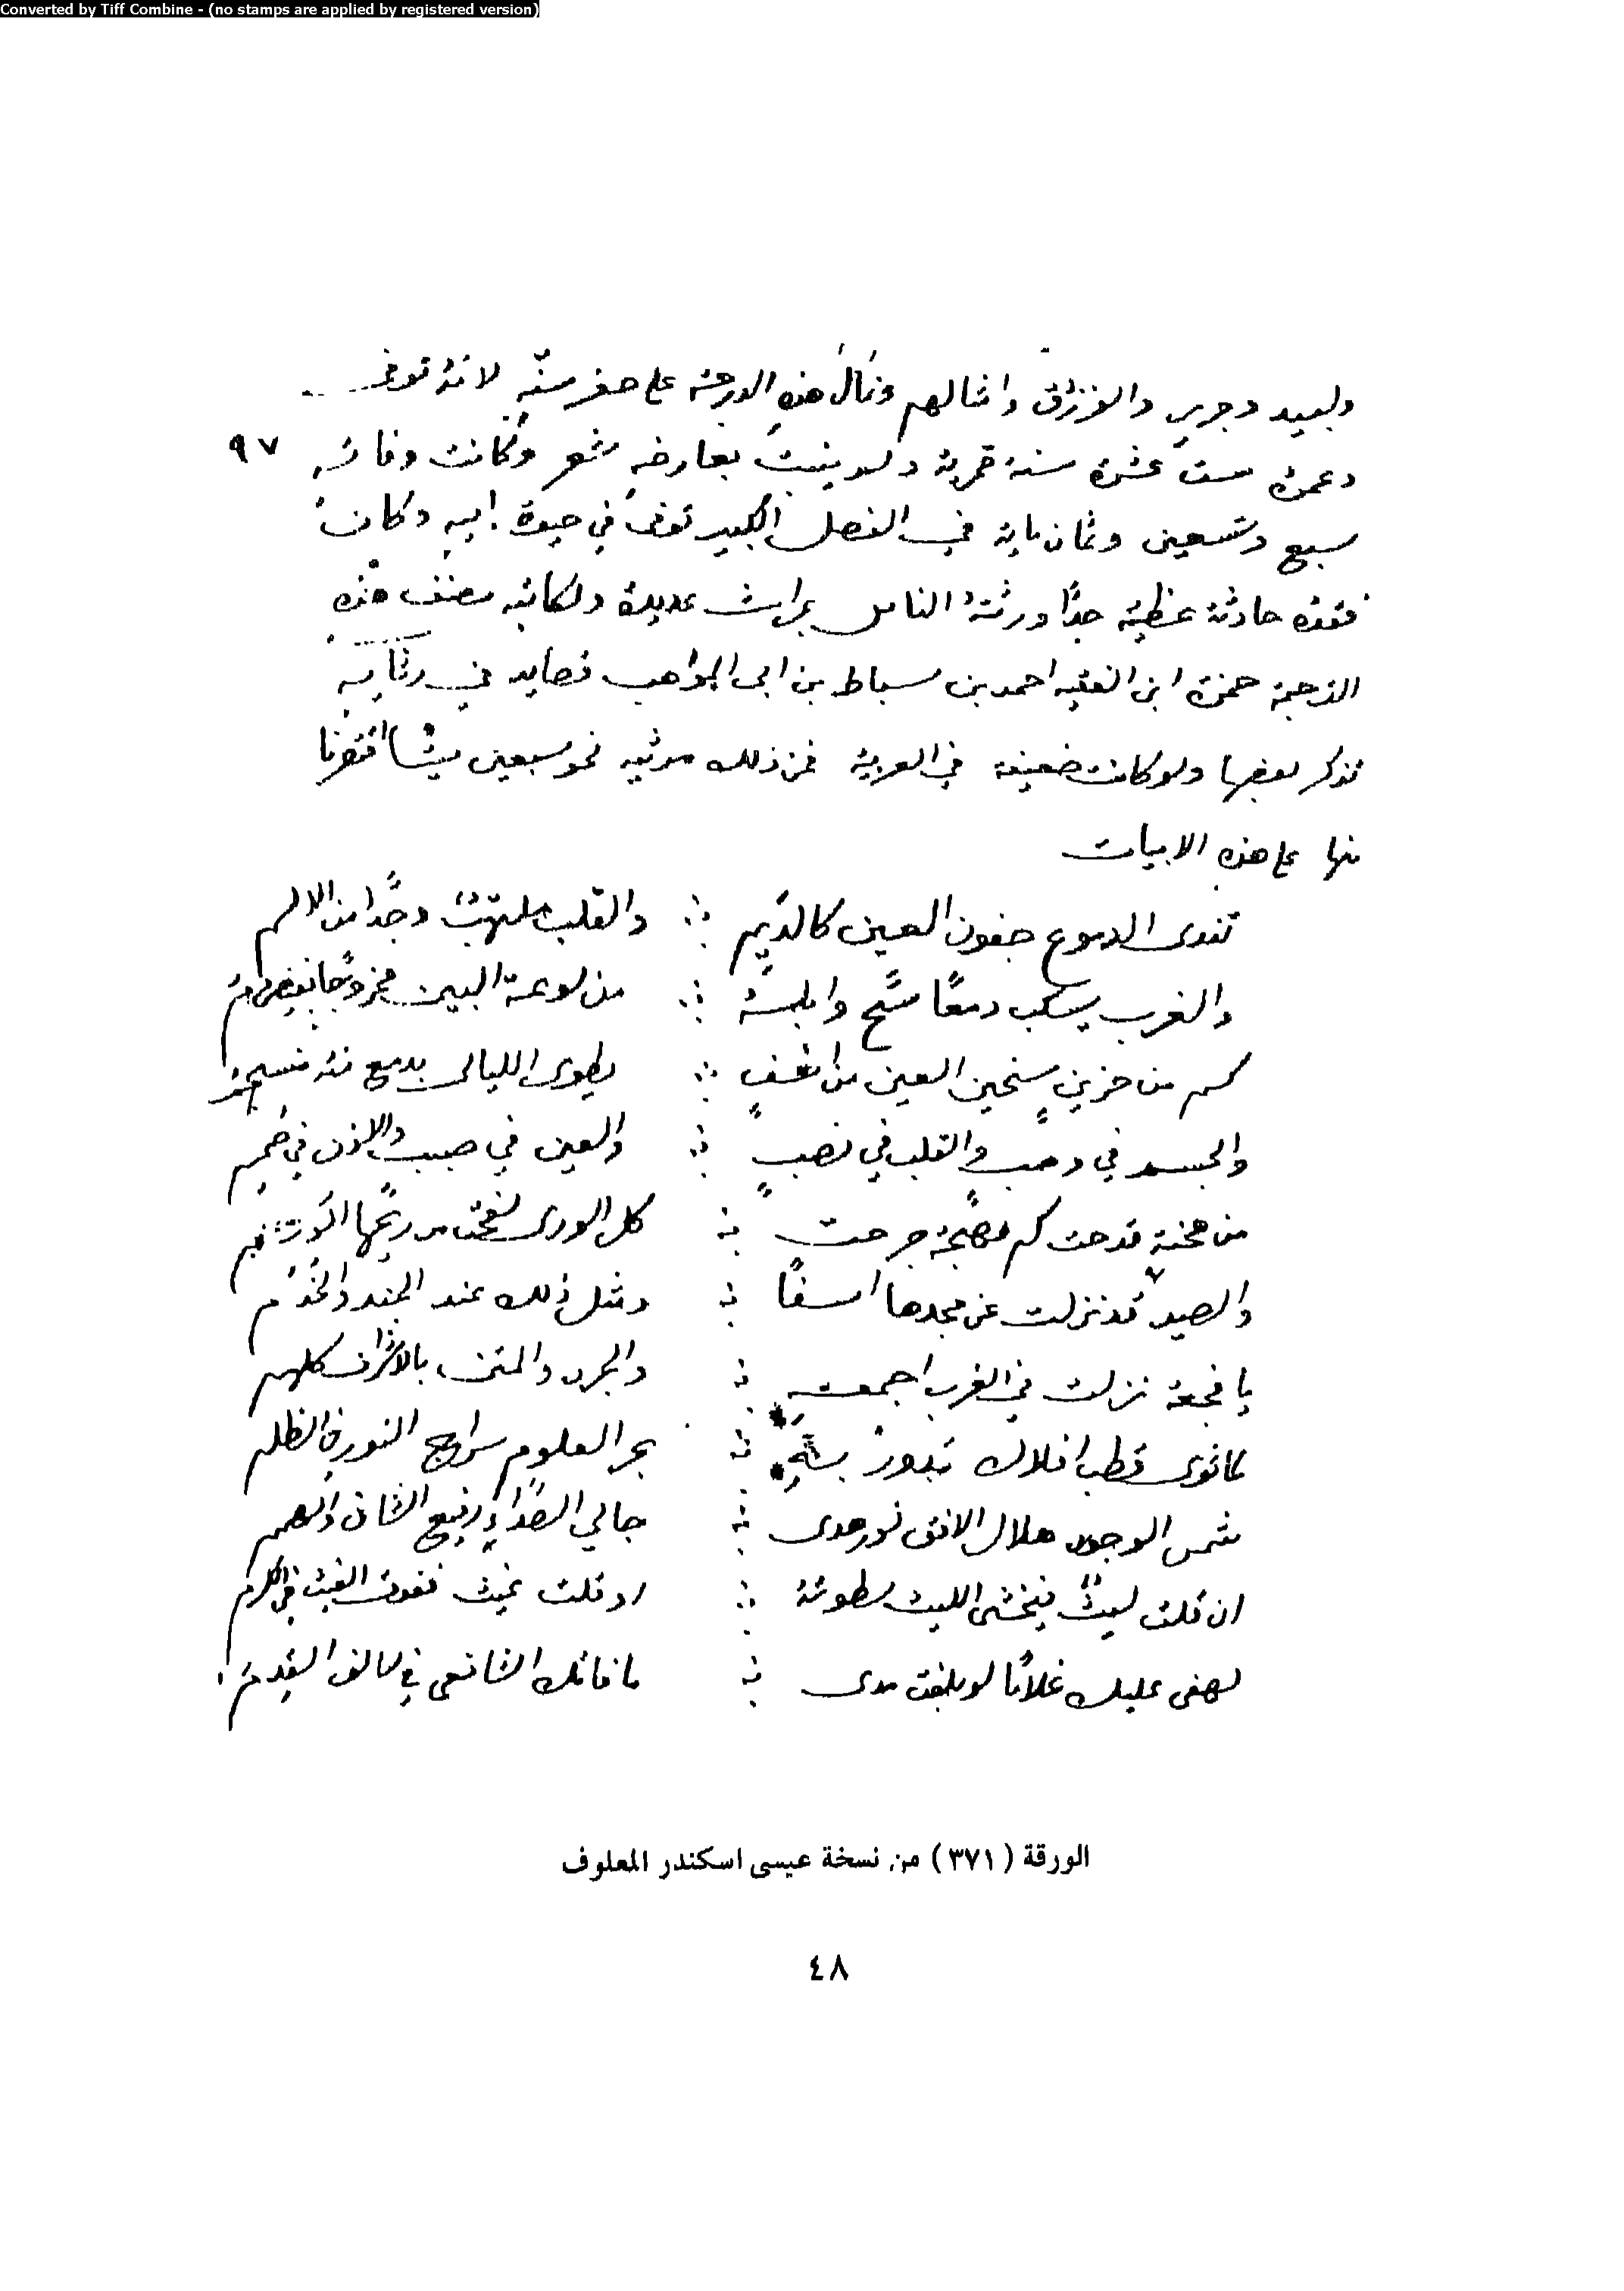 Converted by Tiff Combine - (no stamps are applied by registered version)
ولبيد وجرير والفرزدق وامثالهم ونال هذه الدرجة على صغر سنّه لانهُ توفى
وعمره ست عشرة سنة قمرية ولم ينبت بعارضه شعر وكانت وفاته ٩٧
سبع وتسعين وثمان ماية في الفصل الكبير توفى في حيوة ابيه وكان
فقده حادثة عظيمة جدًا ورثتهُ الناس بمراث عديدة ولكاتبه مصنف هذه
الترجمة حمزة ابن الفقيه احمد بن سباط بن ابى المواهب قصايد في رثايه
نذكر بعضها ولو كانت ضعيفة في العربية فمن ذلك مرثيه نحو سبعين بيتًا اقتصرنا
منها على هذه الابيات
تندى الدموع جفون العين كالديم ∴ والقلب ملتهبٌ وجدًا من الالم
والغرب يسكب دمعًا سَحّ وابلهُ ∴ من لوعة البين ممزوجًا بفيض دم
كم من حزينٍ سخين العين من اسفٍ ∴ يطوى الليالى بدمع منه منسجم
والجسم في وصبٍ والقلب في نصبٍ ∴ والعين في صبب والاذن في صمم
من محنةٍ قدحت كم مهجة جرحت ∴ كل الورى لفحت من ريحها
والصيد قد نزلت عن مجدها اسفًا ∴ ومثل ذلك عند الجند والخدم
يا فجعة نزلت في الغرب اجمعه ∴ والجرد والمتن بالاشراف كلهم
لما ثوى قطب افلاك تدور به ∴ بحر العلوم سراج النور في الظلم
شمس الوجود هلال الافق نور هدى ∴ جالي الصداءِ رفيع الشان والهمم
ان قلت ليثٌ فيخشى الليث سطوتهُ ∴ او قلت غيث ففوق الغيث في الكرم
لهفى عليك غلامًا لو بلغت مدى ∴ ما فاتك الشافعى في سالف القدم
الورقة (٣٧١) من نسخة عيسى اسكندر المعلوف
٤٨